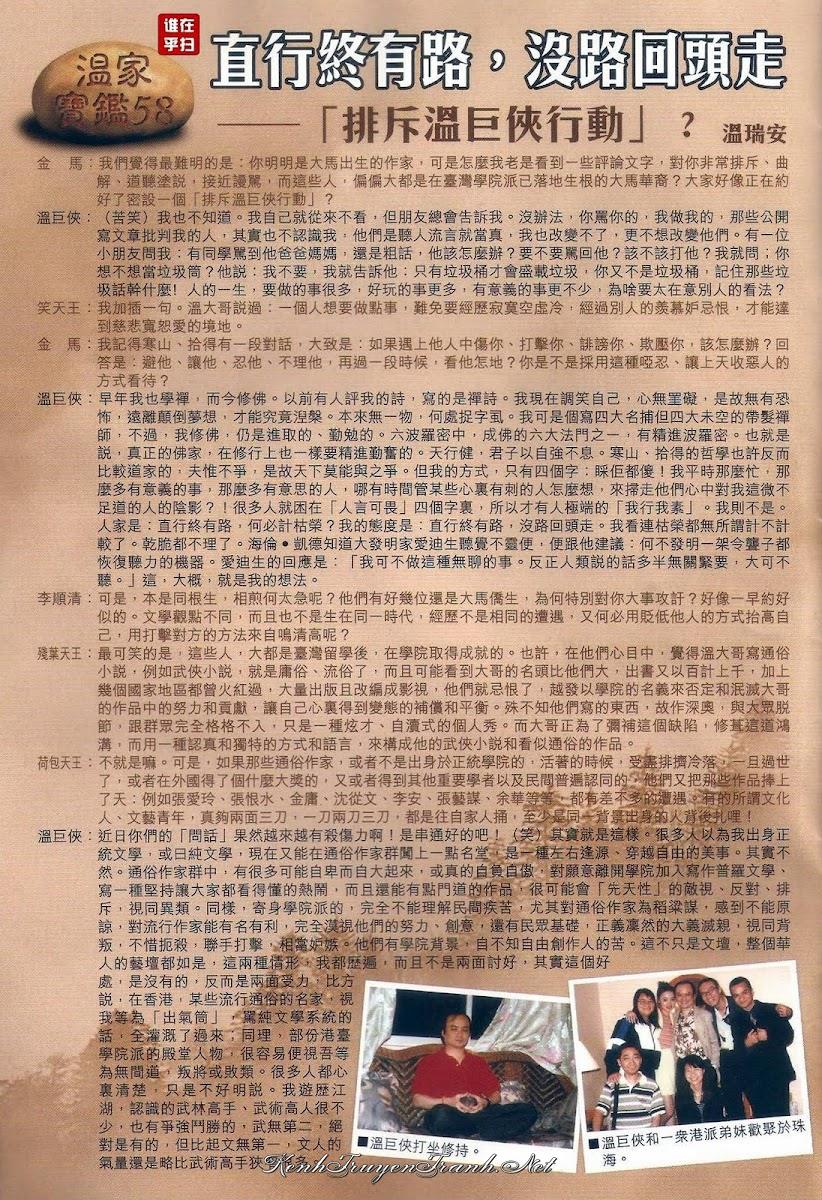 誰在乎
掃
溫家
寶鑑58
直行終有路，沒路回頭走
——「排斥溫巨俠行動」？ 溫瑞安
金　馬：我們覺得最難明的是：你明明是大馬出生的作家，可是怎麼我老是看到一些評論文字，對你非常排斥、曲
解、道聽塗說，接近謾罵，而這些人，偏偏大都是在臺灣學院派已落地生根的大馬華裔？大家好像正在約
好了密設一個「排斥溫巨俠行動」？
溫巨俠：（苦笑）我也不知道。我自己就從來不看，但朋友總會告訴我。沒辦法，你罵你的，我做我的，那些公開
寫文章批判我的人，其實也不認識我，他們是聽人流言就當真，我也改變不了，更不想改變他們。有一位
小朋友問我：有同學罵到他爸爸媽媽，還是粗話，他該怎麼辦？要不要罵回他？該不該打他？我就問；你
想不想當垃圾筒？他說：我不要，我就告訴他：只有垃圾桶才會盛載垃圾，你又不是垃圾桶，記住那些垃
圾話幹什麼！人的一生，要做的事很多，好玩的事更多，有意義的事更不少，為啥要太在意別人的看法？
笑天王：我加插一句。溫大哥說過：一個人想要做點事，難免要經歷寂寞空虛冷，經過別人的羨慕妒忌恨，才能達
到慈悲寬恕愛的境地。
金　馬：我記得寒山、拾得有一段對話，大致是：如果遇上他人中傷你、打擊你、誹謗你、欺壓你，該怎麼辦？回
答是：避他、讓他、忍他、不理他，再過一段時候，看他怎地？你是不是採用這種啞忍、讓上天收惡人的
方式看待？
溫巨俠：早年我也學禪，而今修佛。以前有人評我的詩，寫的是禪詩。我現在調笑自己，心無罣礙，是故無有恐
怖，遠離顛倒夢想，才能究竟涅槃。本來無一物，何處捉字虱。我可是個寫四大名捕但四大未空的帶髮禪
師，不過，我修佛，仍是進取的、勤勉的。六波羅密中，成佛的六大法門之一，有精進波羅密。也就是
說，真正的佛家，在修行上也一樣要精進勤奮的。天行健，君子以自強不息。寒山、拾得的哲學也許反而
比較道家的，夫惟不爭，是故天下莫能與之爭。但我的方式，只有四個字：睬佢都傻！我平時那麼忙，那
麼多有意義的事，那麼多有意思的人，哪有時間管某些心裏有刺的人怎麼想，來掃走他們心中對我這微不
足道的人的陰影？！很多人就困在「人言可畏」四個字裏，所以才有人極端的「我行我素」。我則不是。
人家是：直行終有路，何必計枯榮？我的態度是：直行終有路，沒路回頭走。我看連枯榮都無所謂計不計
較了。乾脆都不理了。海倫•凱德知道大發明家愛迪生聽覺不靈便，便跟他建議：何不發明一架令聾子都
恢復聽力的機器。愛迪生的回應是：「我可不做這種無聊的事。反正人類説的話多半無關緊要，大可不
聽。」這，大概，就是我的想法。
李順清：可是，本是同根生，相煎何太急呢？他們有好幾位還是大馬僑生，為何特別對你大事攻訐？好像一早約好
似的。文學觀點不同，而且也不是生在同一時代，經歷不是相同的遭遇，又何必用貶低他人的方式抬高自
己，用打擊對方的方法來自鳴清高呢？
殘葉天王：最可笑的是，這些人，大都是臺灣留學後，在學院取得成就的。也許，在他們心目中，覺得溫大哥寫通俗
小說，例如武俠小說，就是庸俗、流俗了，而且可能看到大哥的名頭比他們大，出書又以百計上千，加上
幾個國家地區都曾火紅過，大量出版且改編成影視，他們就忌恨了，越發以學院的名義來否定和泯滅大哥
的作品中的努力和貢獻，讓自己心裏得到變態的補償和平衡。殊不知他們寫的東西，故作深奧，與大眾脫
節，跟群眾完全格格不入，只是一種炫才、自瀆式的個人秀。而大哥正為了彌補這個缺陷，修葺這道鴻
溝，而用一種認真和獨特的方式和語言，來構成他的武俠小說和看似通俗的作品。
荷包天王：不就是嘛。可是，如果那些通俗作家，或者不是出身於正統學院的，活著的時候，受盡排擠冷落，一旦過世
了，或者在外國得了個什麼大獎的，又或者得到其他重要學者以及民間普遍認同的，他們又把那些作品捧上
了天：例如張愛玲、張恨水、金庸、沈從文、李安、張藝謀、余華等等，都有差不多的遭遇。有的所謂文化
人、文藝青年，真夠兩面三刀，一刀兩刀三刀，都是往自家人捅，至少是同一背景出身的人背後扎哩！
溫巨俠：近日你們的「問話」果然越來越有殺傷力啊！是串通好的吧！（笑）其實就是這樣。很多人以為我出身正
統文學，或曰純文學，現在又能在通俗作家群闖上一點名堂，是一種左右逢源、穿越自由的美事。其實不
然。通俗作家群中，有很多可能自卑而自大起來，或真的自負自傲，對願意離開學院加入寫作普羅文學、
寫一種堅持讓大家都看得懂的熱鬧，而且還能有點門道的作品，很可能會「先天性」的敵視、反對、排
斥，視同異類。同樣，寄身學院派的，完全不能理解民間疾苦，尤其對通俗作家為稻粱謀，感到不能原
諒，對流行作家能有名有利，完全漠視他們的努力、創意，還有民眾基礎，正義凜然的大義滅親，視同背
叛，不惜扼殺，聯手打擊，相當妒嫉。他們有學院背景，自不知自由創作人的苦。這不只是文壇，整個華
人的藝壇都如是，這兩種情形，我都歷遍，而且不是兩面討好，其實這個好
處，是沒有的，反而是兩面受力。比方
說，在香港，某些流行通俗的名家，視
我等為「出氣筒」，罵純文學系統的
話，全灌溉了過來；同理，部份港臺
學院派的殿堂人物，很容易便視吾等
為無間道，叛將或敗類。很多人都心
裏清楚，只是不好明說。我遊歷江
湖，認識的武林高手、武術高人很不
少，也有爭強鬥勝的，武無第二，絕
對是有的，但比起文無第一，文人的
氣量還是略比武術高手狹窄多多。
■溫巨俠打坐修持。
■溫巨俠和一衆港派弟妹歡聚於珠
海。
KenhTruyenTranh.Net